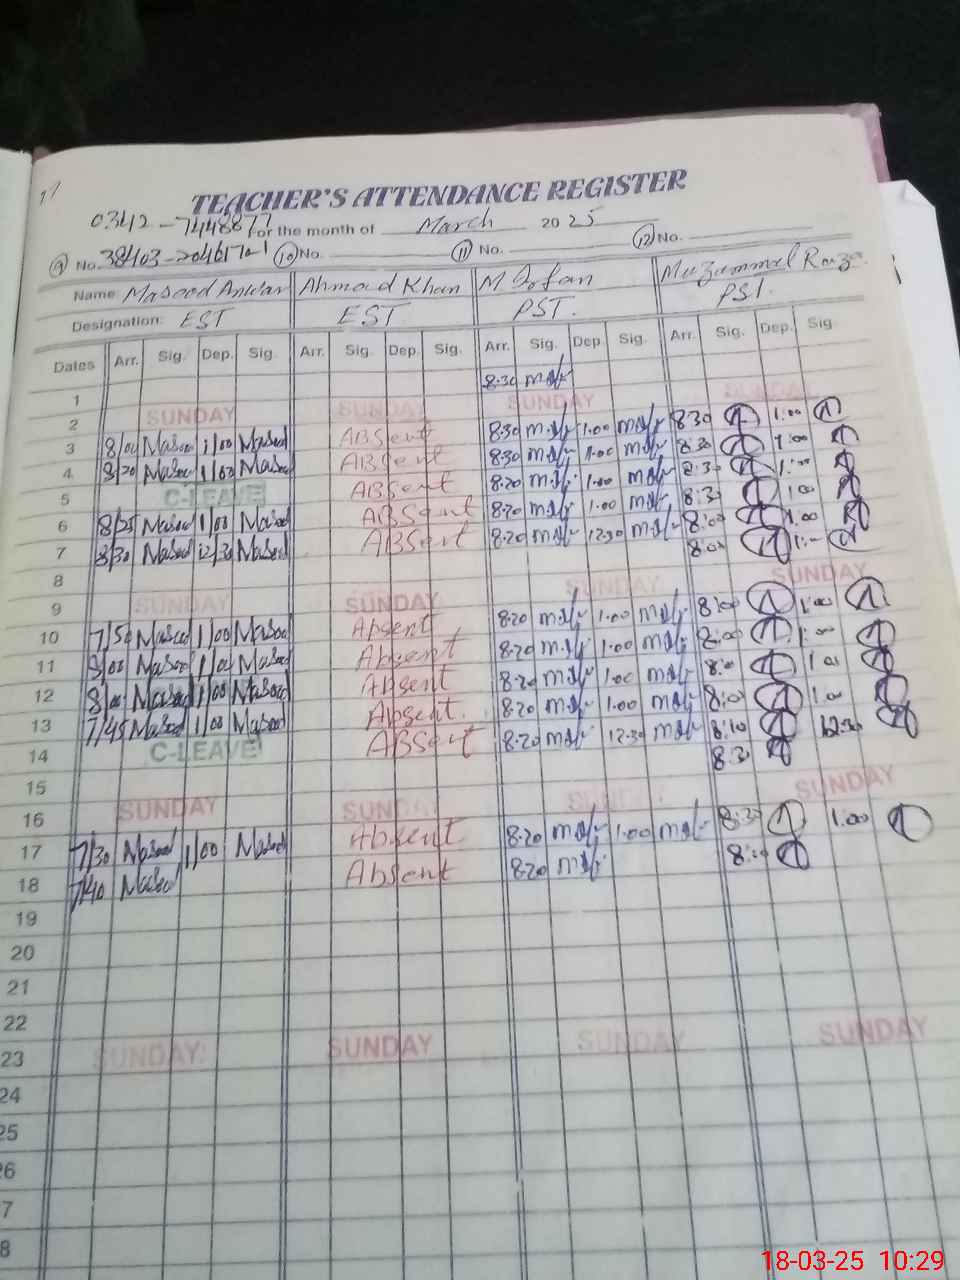 17
TEACHER'S ATTENDANCE REGISTER
0342-7448877 For the month of March 2025
9 No. 38403-2046170-1 10 No. 11 No. 12 No.
Name: Masood Anwar Ahmad Khan M Irfan Muzammal Raza
Designation: EST EST PST. PST.
Dates Arr. Sig. Dep. Sig. Arr. Sig. Dep. Sig. Arr. Sig. Dep. Sig. Arr. Sig. Dep. Sig.
8:30
1
2 SUNDAY SUNDAY SUNDAY SUNDAY
3 8/00 Masood 1/00 Masood ABSent 8:30 1:00 8:30 1:00
4 8/20 Masood 1/00 Masood ABSent 8:30 1:00 8:30 1:00
5 C-LEAVE ABSent 8:20 1:00 8:30 1:00
6 8/25 Masood 1/00 Masood ABSent 8:20 1:00 8:30 1:00
7 8/30 Masood 12/30 Masood ABSent 8:20 12:30 8:00 1:00
8 8:00
9 SUNDAY SUNDAY SUNDAY SUNDAY
10 7/50 Masood 1/00 Masood Absent 8:20 1:00 8:00 1:00
11 8/00 Masood 1/00 Masood Absent 8:20 1:00 8:00 1:00
12 8/00 Masood 1/00 Masood Absent 8:20 1:00 8:00 1:00
13 7/45 Masood 1/00 Masood Absent. 8:20 1:00 8:00 1:00
14 C-LEAVE ABSent 8:20 12:30 8:10 12:30
15 8:30
16 SUNDAY SUNDAY SUNDAY SUNDAY
17 7/30 Masood 1/00 Masood Absent 8:20 1:00 8:30 1:00
18 7/40 Masood Absent 8:20
19
20
21
22
23 SUNDAY SUNDAY SUNDAY SUNDAY
24
25
26
7
8
18-03-25 10:29